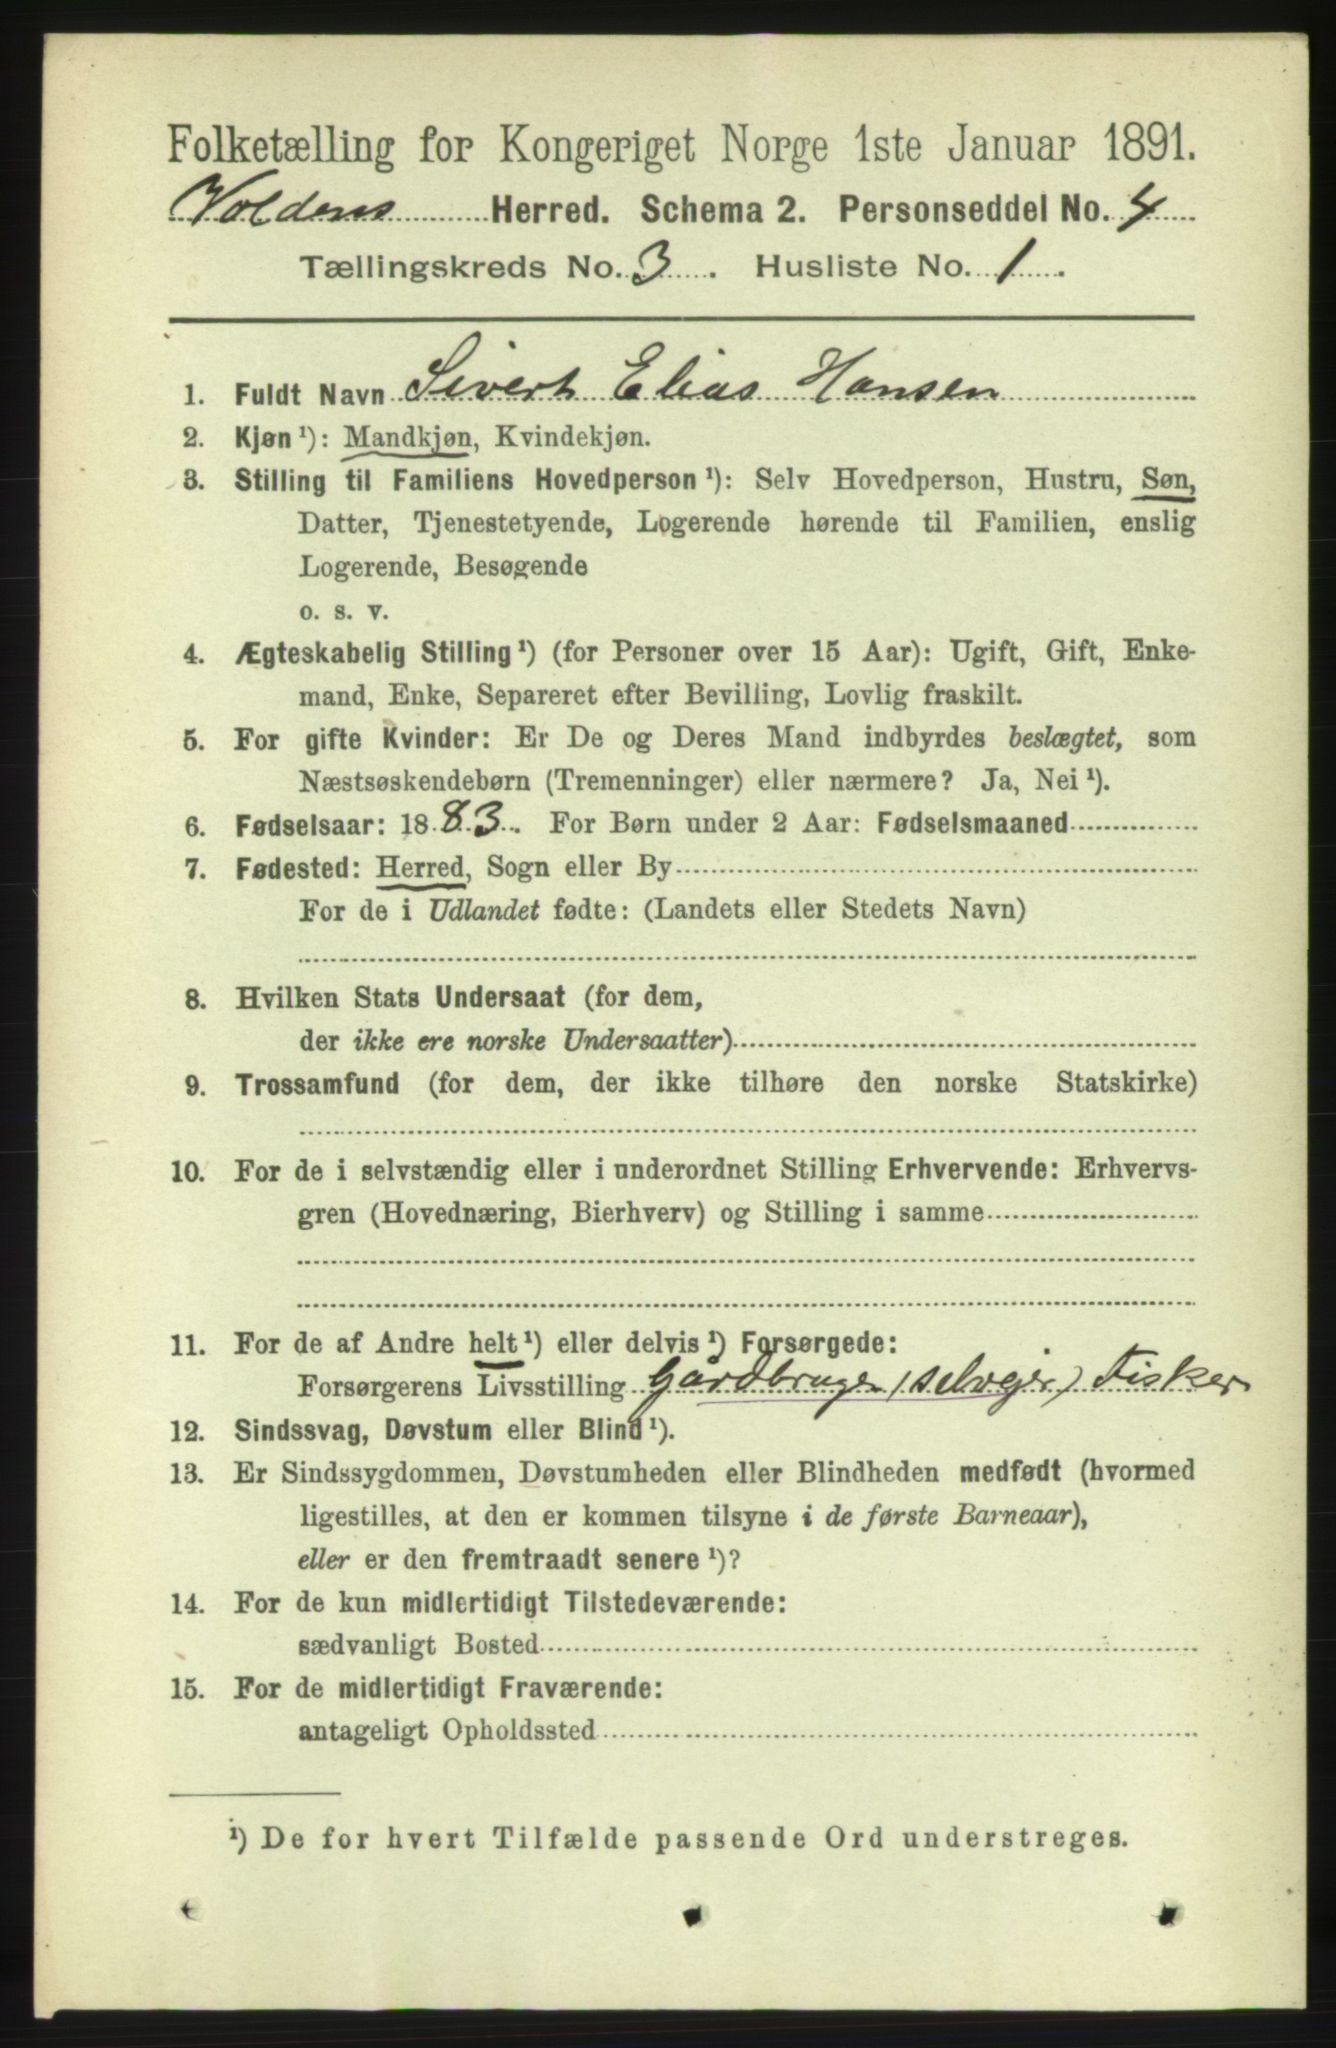 Folketælling for Kongeriget Norge 1ste Januar 1891.
Voldens Herred. Schema 2. Personseddel No. 4
Tællingskreds No. 3. Husliste No. 1.
1. Fuldt Navn Sivert Elias Hansen
2. Kjøn ¹): Mandkjøn, Kvindekjøn.
3. Stilling til Familiens Hovedperson ¹): Selv Hovedperson, Hustru, Søn,
Datter, Tjenestetyende, Logerende hørende til Familien, enslig
Logerende, Besøgende
o. s. v.
4. Ægteskabelig Stilling ¹) (for Personer over 15 Aar): Ugift, Gift, Enke-
mand, Enke, Separeret efter Bevilling, Lovlig fraskilt.
5. For gifte Kvinder: Er De og Deres Mand indbyrdes beslægtet, som
Næstsøskendebørn (Tremenninger) eller nærmere? Ja, Nei ¹).
6. Fødselsaar: 1883. For Børn under 2 Aar: Fødselsmaaned
7. Fødested: Herred, Sogn eller By
For de i Udlandet fødte: (Landets eller Stedets Navn)
8. Hvilken Stats Undersaat (for dem,
der ikke ere norske Undersaatter)
9. Trossamfund (for dem, der ikke tilhøre den norske Statskirke)
10. For de i selvstændig eller i underordnet Stilling Erhvervende: Erhvervs-
gren (Hovednæring, Bierhverv) og Stilling i samme
11. For de af Andre helt ¹) eller delvis ¹) Forsørgede:
Forsørgerens Livsstilling Gårdbruger (selvejer) Fisker
12. Sindssvag, Døvstum eller Blind ¹).
13. Er Sindssygdommen, Døvstumheden eller Blindheden medfødt (hvormed
ligestilles, at den er kommen tilsyne i de første Barneaar),
eller er den fremtraadt senere ¹)?
14. For de kun midlertidigt Tilstedeværende:
sædvanligt Bosted
15. For de midlertidigt Fraværende:
antageligt Opholdssted
¹) De for hvert Tilfælde passende Ord understreges.